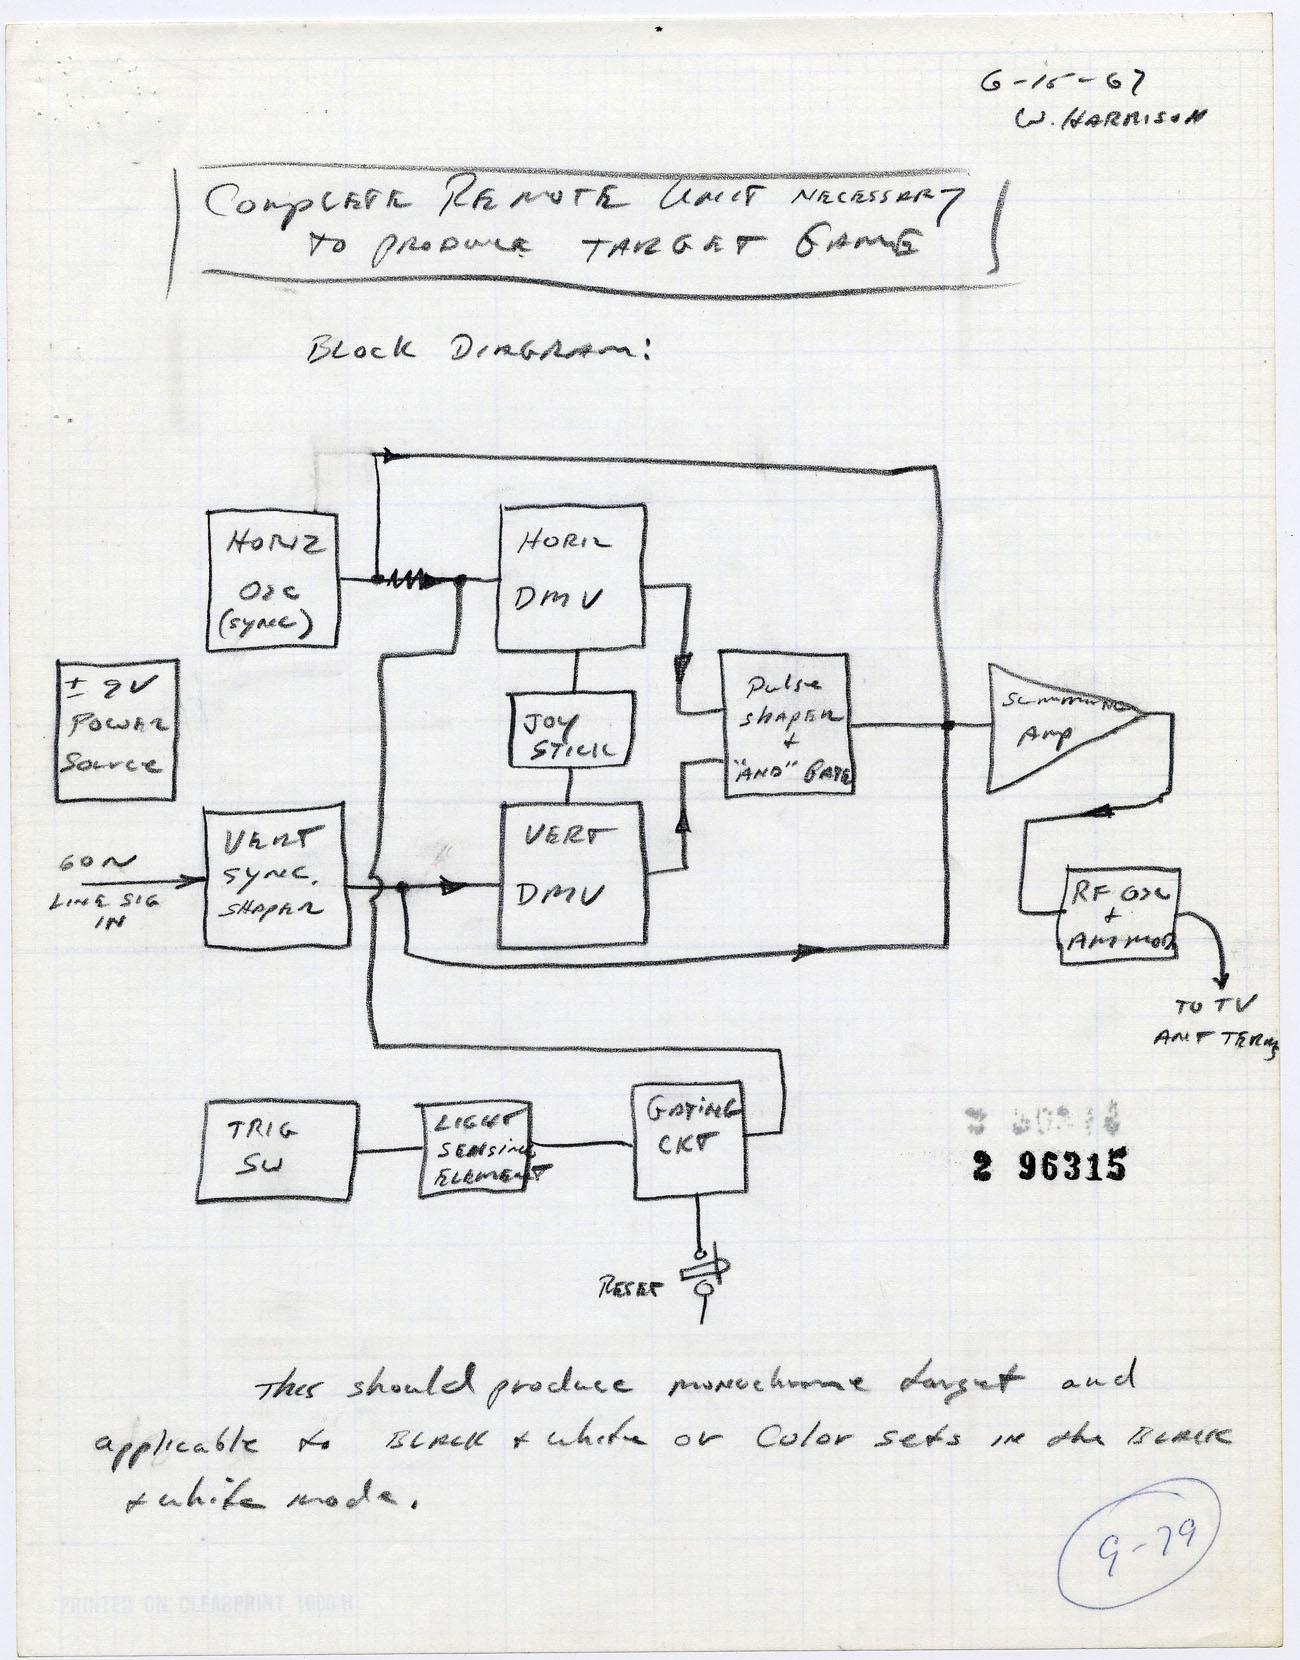 6-15-67
W. HARRISON
COMPLETE REMOTE UNIT NECESSARY
TO PRODUCE TARGET GAME
BLOCK DIAGRAM:
HORIZ
OSC
(SYNC)
HORIZ
DMV
± 9V
POWER
Source
JOY
STICK
Pulse
SHAPER
+
"AND" GATE
SUMMING
AMP
60~
LINE SIG
IN
VERT
SYNC.
SHAPER
VERT
DMV
RF OSC
+
AM MOD
TO TV
ANT TERMS
TRIG
SW
LIGHT
SENSING
ELEMENT
GATING
CKT
RESET
2 96315
This should produce monochrome target and
applicable to BLACK + white or Color sets in the BLACK
+ white mode.
9-79
PRINTED ON CLEARPRINT 1000 H